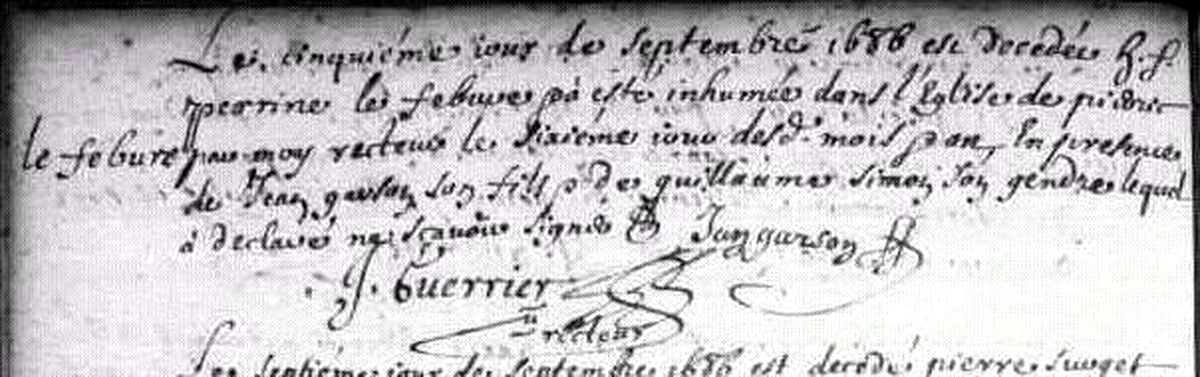 Le cinquiéme iour de septembre 1686 est decedée h. f.
perrine le febure & a esté inhumée dans l'Eglise de
le febure par moy recteur le sixieme iour desd. mois & an, En presence
de Jean garson son fils & de guillaume simon son gendre lequel
a declaré ne scauoir signer Jan garson
J. Guerrier
recteur
Le septiéme iour de septembre 1686 est decedé pierre